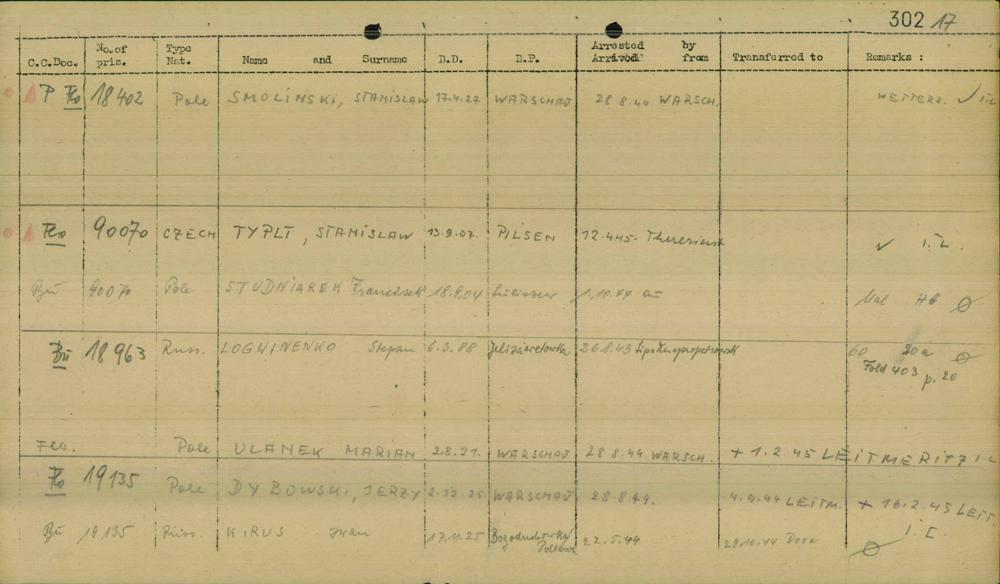 302 17
C.C.Doc. No. of pris. Type Nat. Name and Surname B.D. B.P. Arrested Arrived by from Transferred to Remarks :
P Flo 18402 Pole SMOLINSKI, STANISLAW 17.4.27 WARSCHAU 28 8.44 WARSCH. ✓ I.L
Flo 90070 CZECH TYPLT, STANISLAW 13.9.07. PILSEN 12.4.45. ✓ I.L.
Bu 90070 Pole STUDNIAREK 18.9.04 1.10.44
Bu 18963 Russ. LOGWINENKO Stepan 6.3.88 26.8.43 60 20a
Fold 403 p. 20
Flo. Pole ULANEK MARIAN 2.8.21. WARSCHAU 28 8.44 WARSCH. + 1.2.45 LEITMERITZ I L
Flo 19135 Pole DYBOWSKI, JERZY 2.12.25 WARSCHAU 28 8 44. 4.9.44 LEITM. + 16.2.45 LEIT.
I.L.
Bu 19135 Russ. KIRUS Iwan 17.11.25 Bogoduchowka 22.5.44 29.10.44 Dora
Poltawa